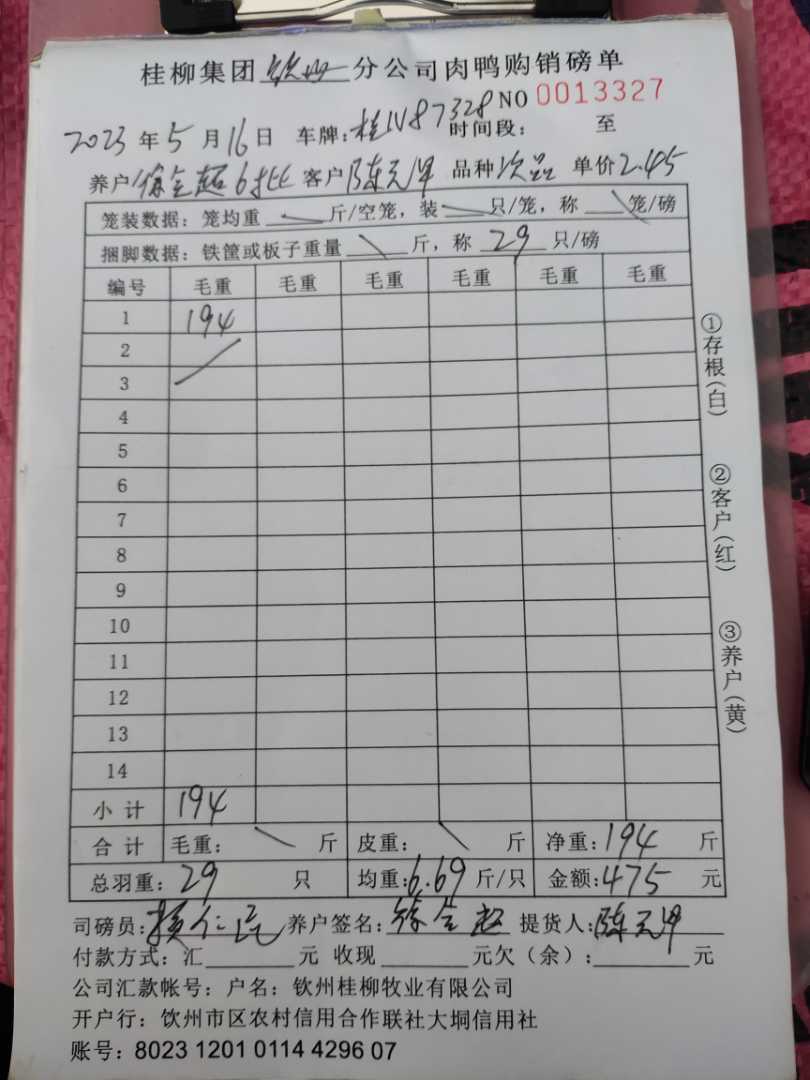 桂柳集团钦州分公司肉鸭购销磅单
NO 0013327
2023年5月16日 车牌:桂N87328 时间段: 至
养户徐全超6批 客户陈元甲 品种次品 单价2.45
笼装数据: 笼均重 斤/空笼, 装 只/笼, 称 笼/磅
捆脚数据: 铁筐或板子重量 斤, 称 29 只/磅
编号 毛重 毛重 毛重 毛重 毛重 毛重
1 194
2
3
4
5
6
7
8
9
10
11
12
13
14
小计 194
合计 毛重: 斤 皮重: 斤 净重:194 斤
总羽重:29 只 均重:6.69 斤/只 金额:475 元
司磅员: 养户签名:徐全超 提货人:陈元甲
付款方式: 汇 元 收现 元欠(余): 元
公司汇款帐号: 户名: 钦州桂柳牧业有限公司
开户行: 饮州市区农村信用合作联社大垌信用社
账号: 8023 1201 0114 4296 07
①存根(白)
②客户(红)
③养户(黄)